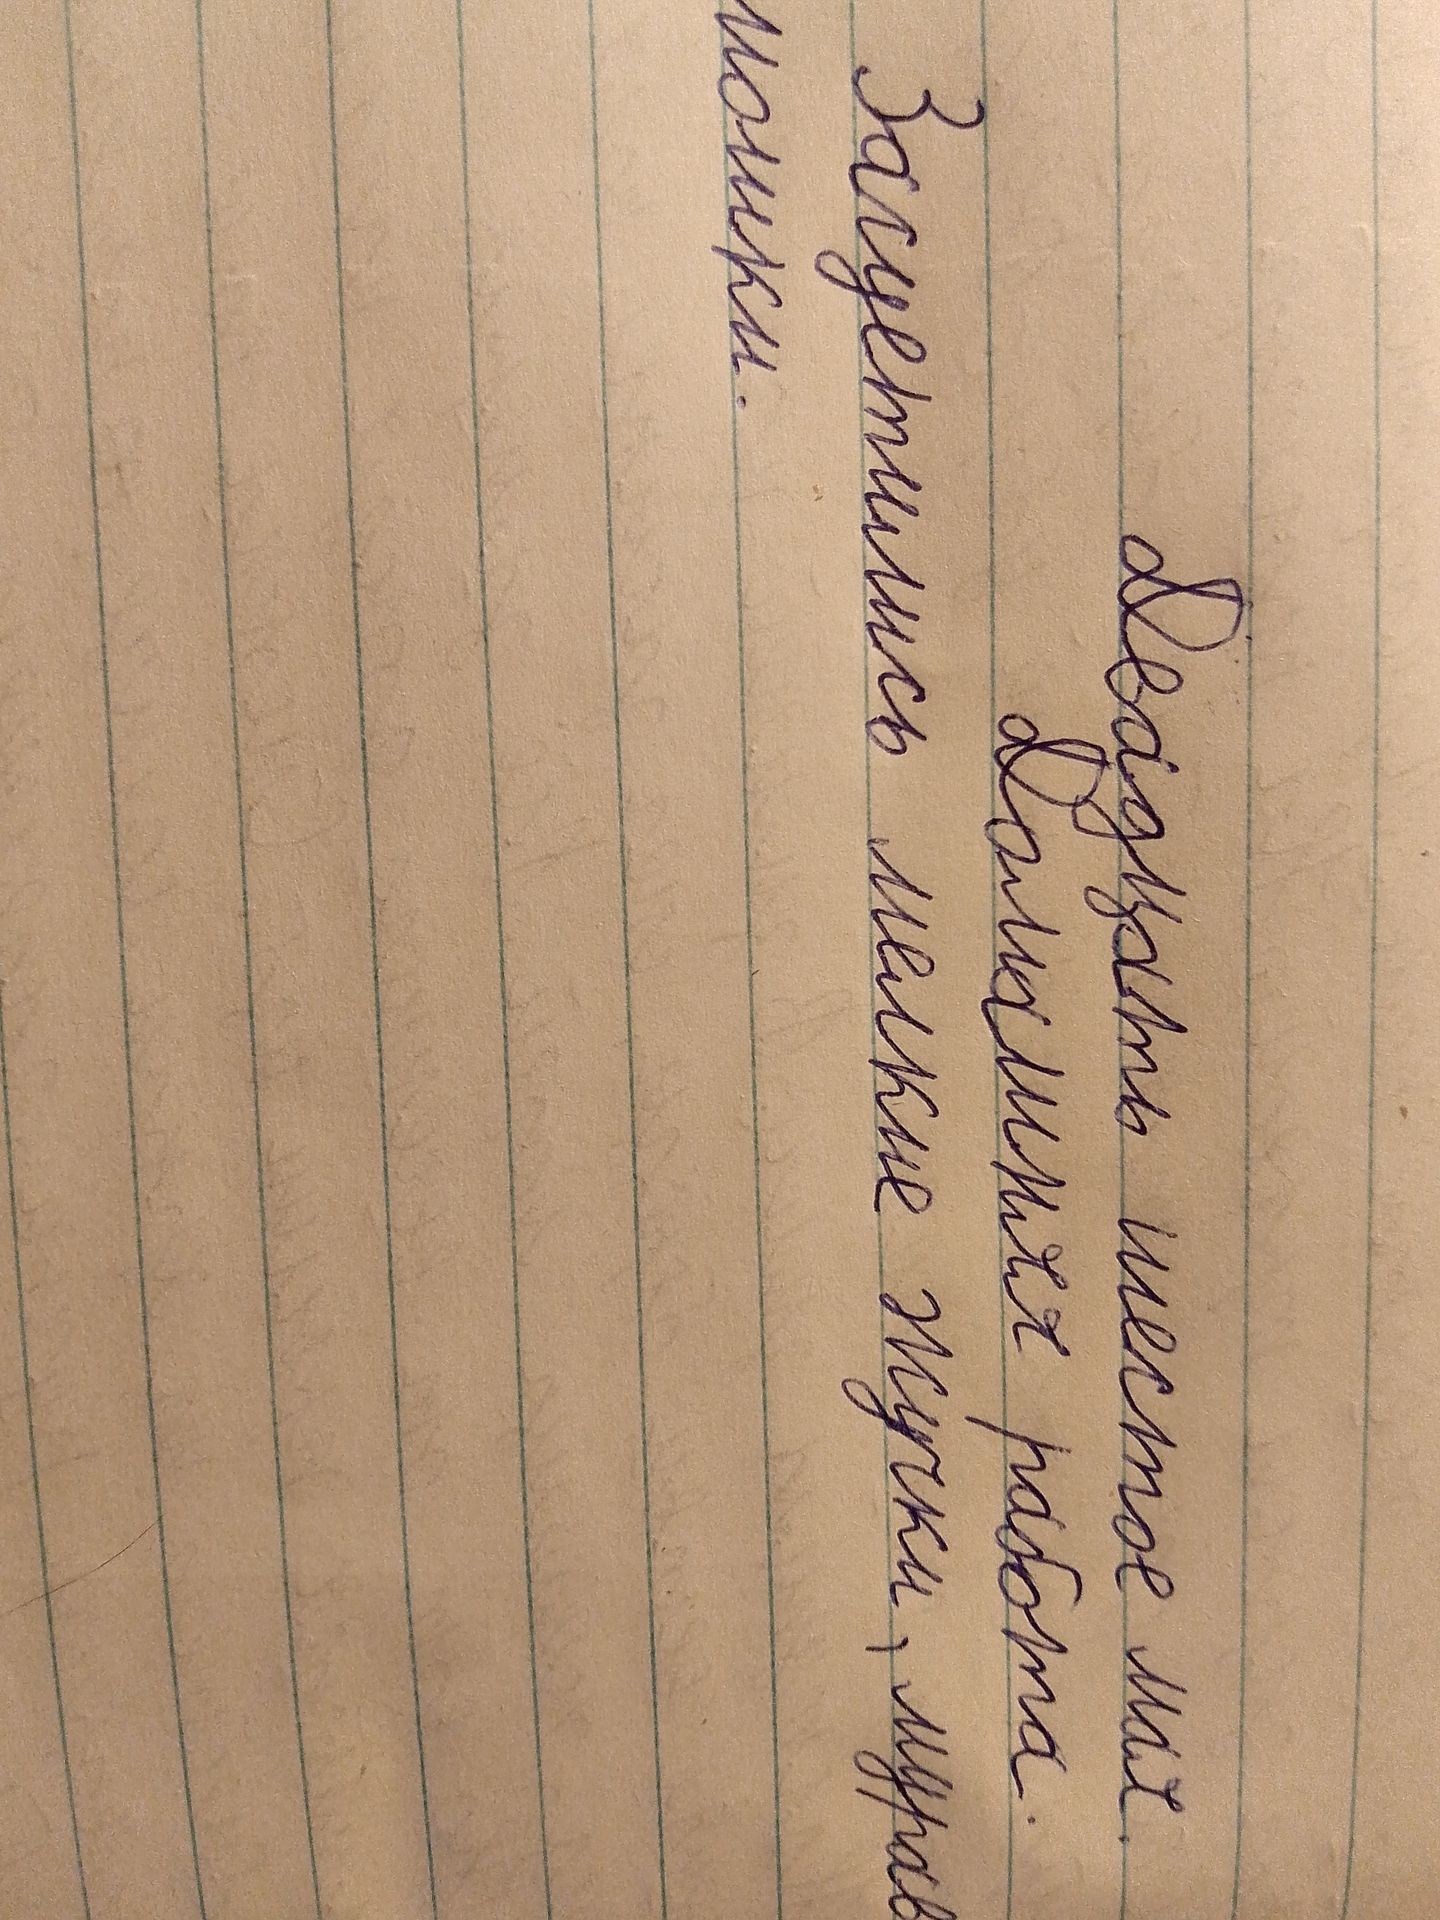 Двадцать шестое мая.
Домашняя работа.
Засуетились мелкие жучки, мурав
мошки.